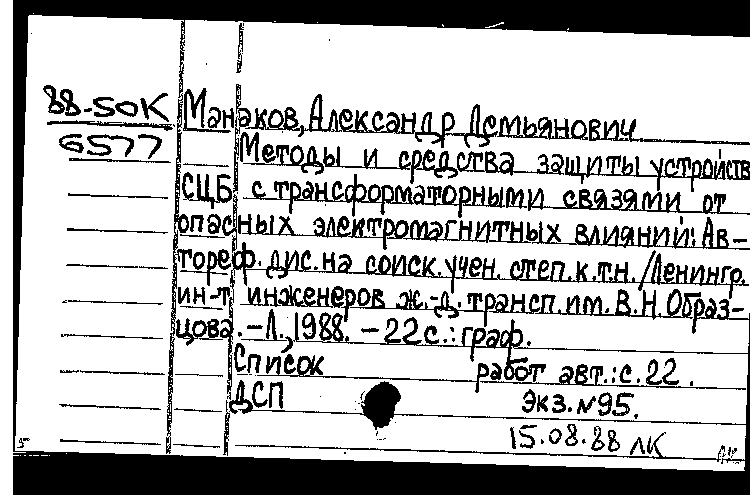 88-50К Манаков, Александр Демьянович
6577 Методы и средства защиты устройств
СЦБ с трансформаторными связями от
опасных электромагнитных влияний: Ав-
тореф. дис. на соиск. учен. степ. к.т.н. /Ленингр.
ин-т инженеров ж.-д. трансп. им. В.Н. Образ-
цова. - Л., 1988. - 22 с.: граф.
Список работ авт.: с. 22.
ДСП Экз. №95.
15.08.88 ЛК
5